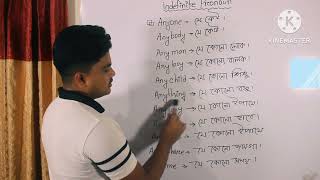 Indefinite Pronoun
Anyone - যে কেউ।
Anybody - যে কেউ।
Any man - যে কোনো লোক।
Any boy - যে কোনো বালক।
Any child - যে কোনো শিশু।
Anything - যে কোনো বস্তু।
Any যে কোনো উপায়ে।
যে কোনো ভাবে।
যে কোনো উপায়ে
যে কোনো
যে কোনো সময়।
KINEMASTER